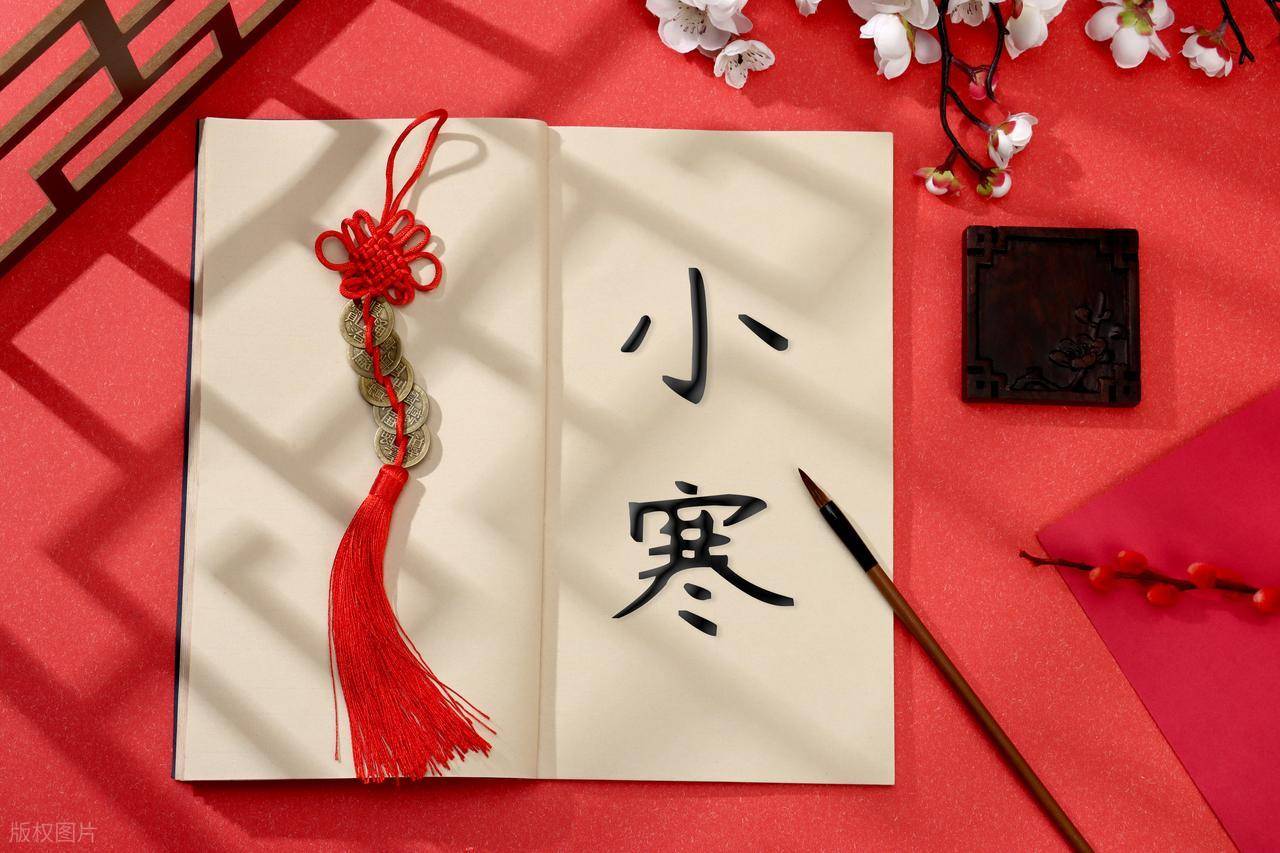 小
寒
版权图片